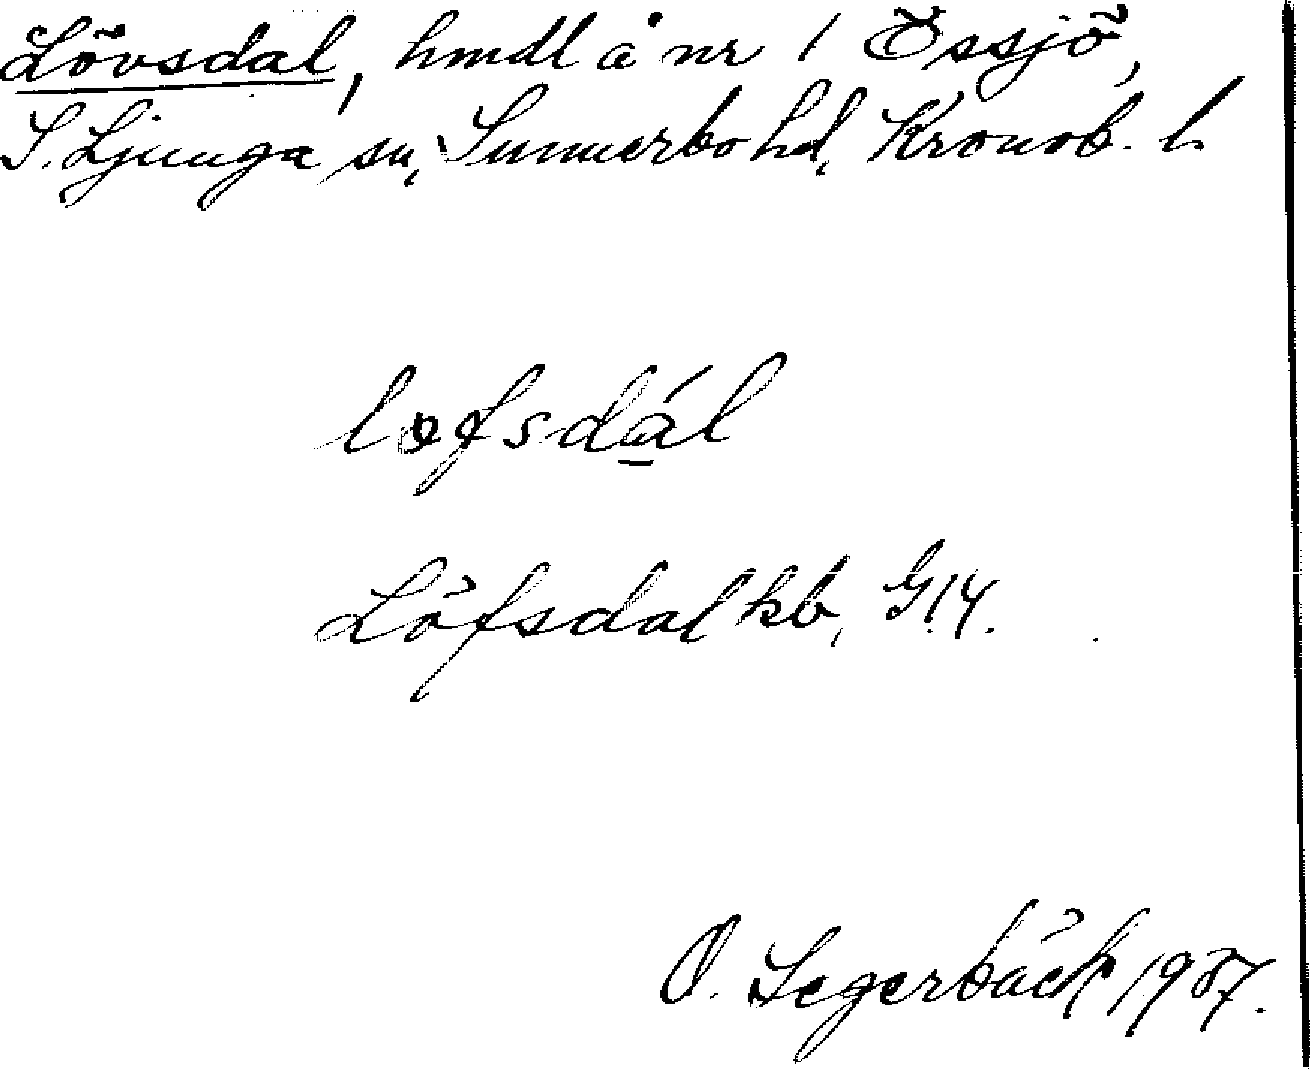 Lövsdal, hmdl å nr 1 Össjö,
S. Ljunga sn, Sunnerbo hd, Kronob. l.
lofsdál
Löfsdal kb, G14.
O. Segerbäck 1937.